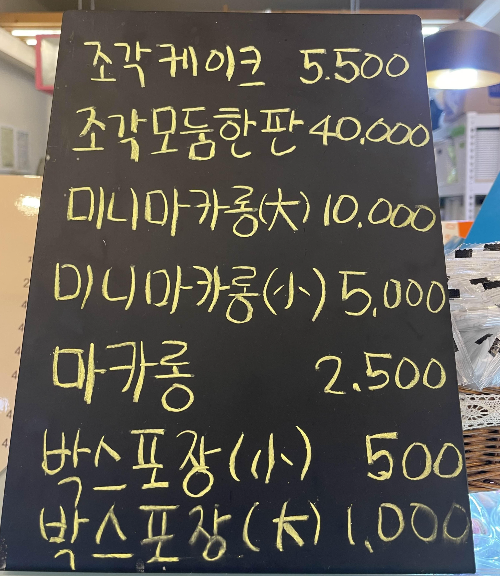 조각케이크 5.500
조각모둠한판 40.000
미니마카롱(大) 10.000
미니마카롱(小) 5,000
마카롱 2.500
박스포장(小) 500
박스포장(大) 1,000